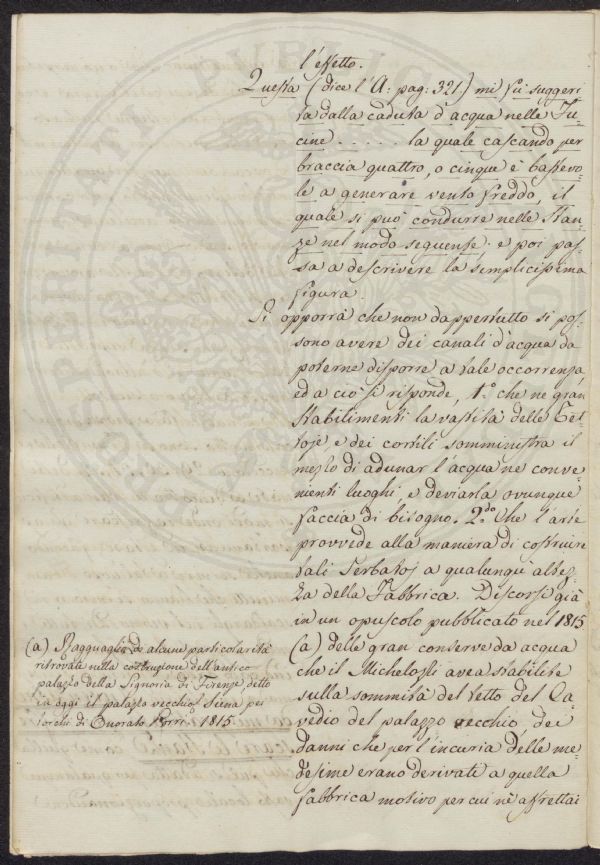 l'effetto.
Questa (dice l'A: pag: 321.) mi fù suggeri
ta dalla caduta d'acqua nelle Fu-
cine ..... la quale cascando per
braccia quattro, o cinque è bastevo-
le a generare vento freddo, il
quale si può condurre nelle stan-
ze nel modo seguente: e poi pas-
sa a descrivere la semplicissima
figura.
Si opporrà che non dappertutto si pos-
sono avere dei canali d'acqua da
poterne disporre a tale occorrenza
ed a ciò si risponde, 1.º che ne gran
stabilimenti la vastità delle Tet-
toje e dei cortili somministra il
mezzo di adunar l'acqua ne conve-
nienti luoghi, e deviarla ovunque
faccia di bisogno. 2.do Che l'arte
provvede alla maniera di costruire
tali Serbatoj a qualunque altez-
za della Fabbrica. Discorsi già
in un opuscolo pubblicato nel 1815
(a) delle gran conserve da acqua
che il Michelozzi avea stabilite
sulla sommità del tetto del Ca-
vedio del palazzo vecchio dei
danni che per l'incuria delle me-
desime erano derivati a quella
fabbrica motivo per cui nè affrettai
(a) Ragguaglio di alcune particolarità
ritrovate nella costruzione dell'antico
palazzo della Signoria di Firenze detto
in oggi il palazzo vecchio, Siena pei
torchi di Onorato Porri. 1815.
PROSPERITATI PUBLIC